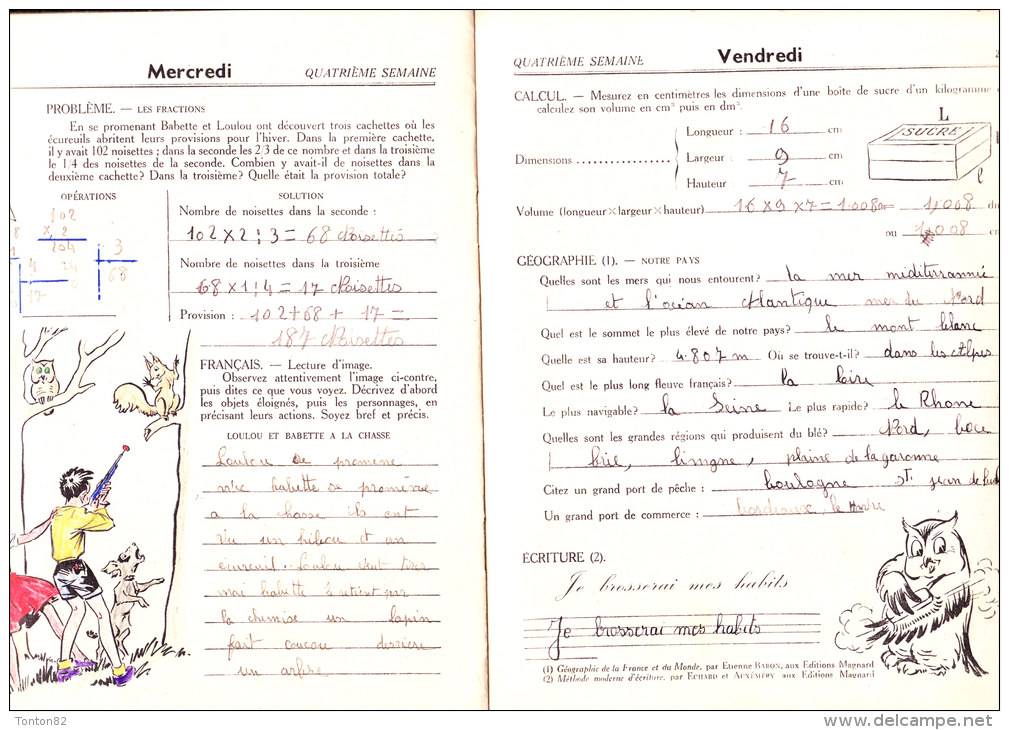 Mercredi QUATRIÈME SEMAINE
PROBLÈME. — LES FRACTIONS
En se promenant Babette et Loulou ont découvert trois cachettes où les
écureuils abritent leurs provisions pour l'hiver. Dans la première cachette,
il y avait 102 noisettes ; dans la seconde les 2/3 de ce nombre et dans la troisième
le 1/4 des noisettes de la seconde. Combien y avait-il de noisettes dans la
deuxième cachette? Dans la troisième? Quelle était la provision totale?
OPÉRATIONS
102
x 2
204 3
24 68
17
SOLUTION
Nombre de noisettes dans la seconde :
102 x 2 : 3 = 68 Noisettes
Nombre de noisettes dans la troisième
68 x 1 : 4 = 17 Noisettes
Provision : 102 + 68 + 17 =
187 Noisettes
FRANÇAIS. — Lecture d'image.
Observez attentivement l'image ci-contre,
puis dites ce que vous voyez. Décrivez d'abord
les objets éloignés, puis les personnages, en
précisant leurs actions. Soyez bref et précis.
LOULOU ET BABETTE A LA CHASSE
Loulou se promene
babette se promène
a la chasse ils ont
vu un hibou et un
écureuil. Loulou veut tirer
mai babette le retient par
la chemise un lapin
fait coucou derriere
un arbre
QUATRIÈME SEMAINE Vendredi
CALCUL. — Mesurez en centimètres les dimensions d'une boîte de sucre d'un kilogramme
calculez son volume en cm³ puis en dm³.
Dimensions
Longueur : 16 cm
Largeur : 9 cm
Hauteur : 7 cm
L
SUCRE
l
Volume (longueur×largeur×hauteur) 16 x 9 x 7 = 1.008 1,008
ou 1,008
GÉOGRAPHIE (1). — NOTRE PAYS
Quelles sont les mers qui nous entourent? la mer méditerrannée
et l'océan Atlantique mer du Nord
Quel est le sommet le plus élevé de notre pays? le mont blanc
Quelle est sa hauteur? 4.807 m Où se trouve-t-il? dans les Alpes
Quel est le plus long fleuve français? la loire
Le plus navigable? la Seine Le plus rapide? le Rhone
Quelles sont les grandes régions qui produisent du blé? Nord,
brie, limagne, plaine de la garonne
Citez un grand port de pêche : boulogne St jean de
Un grand port de commerce : bordeaux, le
ÉCRITURE (2).
Je brosserai mes habits
Je brosserai mes habits
(1) Géographie de la France et du Monde, par Etienne BARON, aux Editions Magnard
(2) Méthode moderne d'écriture, par ECHARD et AUXÉMÉRY aux Editions Magnard
Tonton82
www.delcampe.net